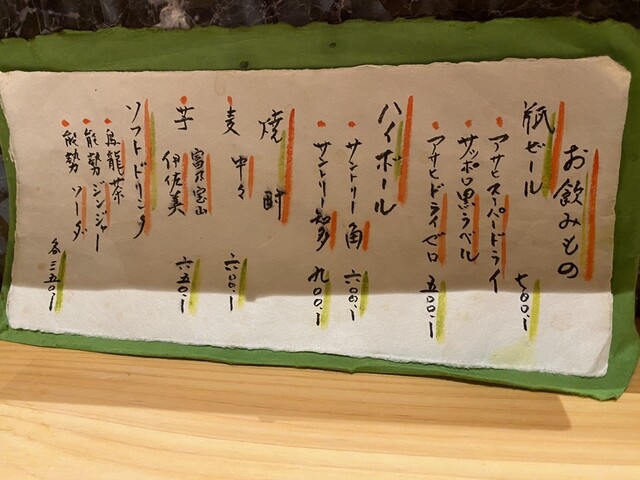 お飲みもの
瓶ビール
アサヒスーパードライ 七〇〇.-
サッポロ黒ラベル
アサヒドライゼロ 五〇〇.-
ハイボール
サントリー角 六〇〇.-
サントリー知多 九〇〇.-
焼酎
麦 中々 六〇〇.-
芋 富乃宝山
伊佐美 六五〇.-
ソフトドリンク
烏龍茶
能勢ジンジャー
能勢ソーダ 各三五〇.-